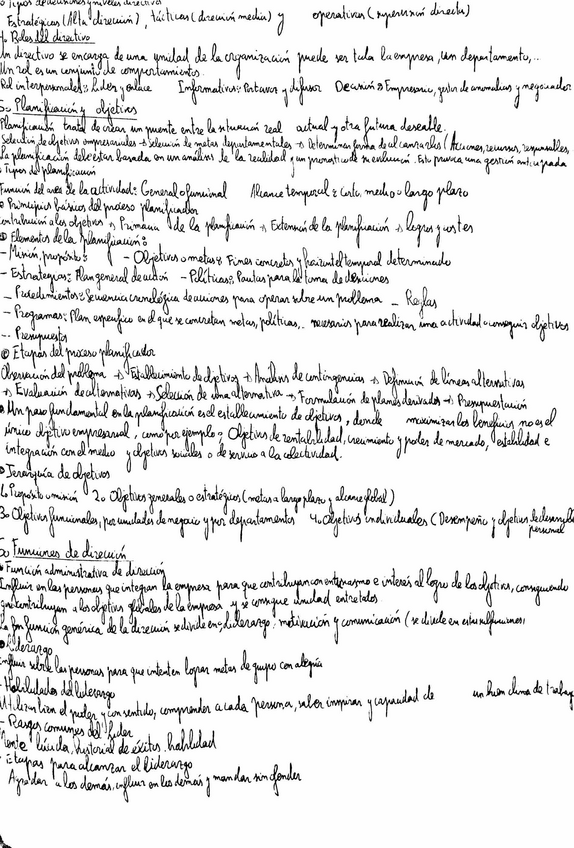 Tipos de decisiones y niveles directivos
Estratégicas (Alta dirección), tácticas (dirección media) y operativas (supervisión directa)
4. Roles del directivo
Un directivo se encarga de una unidad de la organización puede ser toda la empresa, un departamento,...
Un rol es un conjunto de comportamientos.
Rol interpersonales: Líder y enlace Informativos: Portavoz y difusor Decisión: Empresario, gestor de anomalías y negociador
5. Planificación y objetivos
Planificación trata de crear un puente entre la situación real actual y otra futura deseable.
Selección de objetivos empresariales → Selección de metas departamentales → Determinar forma de alcanzarlos (Acciones, recursos, responsables,
La planificación debe estar basada en un análisis de la realidad y un pronóstico de su evolución. Esto provoca una gestión anticipada
Tipos de planificación
Función del área de la actividad: General o funcional Alcance temporal: Corto, medio o largo plazo
Principios básicos del proceso planificador
Contribución a los objetivos → Primacía de la planificación → Extensión de la planificación → logros y costes
Elementos de la planificación:
- Misión, propósito: - Objetivos o metas: Fines concretos y horizonte temporal determinado
- Estrategias: Plan general de acción - Políticas: Pautas para la toma de decisiones
- Procedimientos: Secuencia cronológica de acciones para operar sobre un problema - Reglas
- Programas: Plan específico en el que se concretan metas, políticas,.. necesarios para realizar una actividad o conseguir objetivos
- Presupuestos
Etapas del proceso planificador
Observación del problema → Establecimiento de objetivos → Análisis de contingencias → Definición de líneas alternativas
→ Evaluación de alternativas → Selección de una alternativa → Formulación de planes derivados → Presupuestación
Un paso fundamental en la planificación es el establecimiento de objetivos, donde maximizar los beneficios no es el
único objetivo empresarial, como por ejemplo: Objetivos de rentabilidad, crecimiento y poder de mercado, estabilidad e
integración con el medio y objetivos sociales o de servicio a la colectividad.
Jerarquía de objetivos
1. Propósito o misión 2. Objetivos generales o estratégicos (metas a largo plazo y alcance global)
3. Objetivos funcionales, por unidades de negocio y por departamentos 4. Objetivos individuales (Desempeño y objetivos de desarrollo
personal
5. Funciones de dirección
Función administrativa de dirección
Influir en las personas que integran la empresa para que contribuyan con entusiasmo e interés al logro de los objetivos, consiguiendo
que contribuyan a los objetivos globales de la empresa y se consigue unidad entre todos
La función genérica, de la dirección se divide en: liderazgo, motivación y comunicación (se divide en estas subfunciones)
Liderazgo
Influir sobre las personas para que intenten lograr metas de grupo con alegría
- Habilidades del liderazgo
Utilizar bien el poder y con sentido, comprender a cada persona, saber inspirar y capacidad de un buen clima de trabajo
- Rasgos comunes del líder
Mente lúcida, historial de éxitos, habilidad
- Etapas para alcanzar el liderazgo
Agradar a los demás, influir en los demás y mandar sin ofender